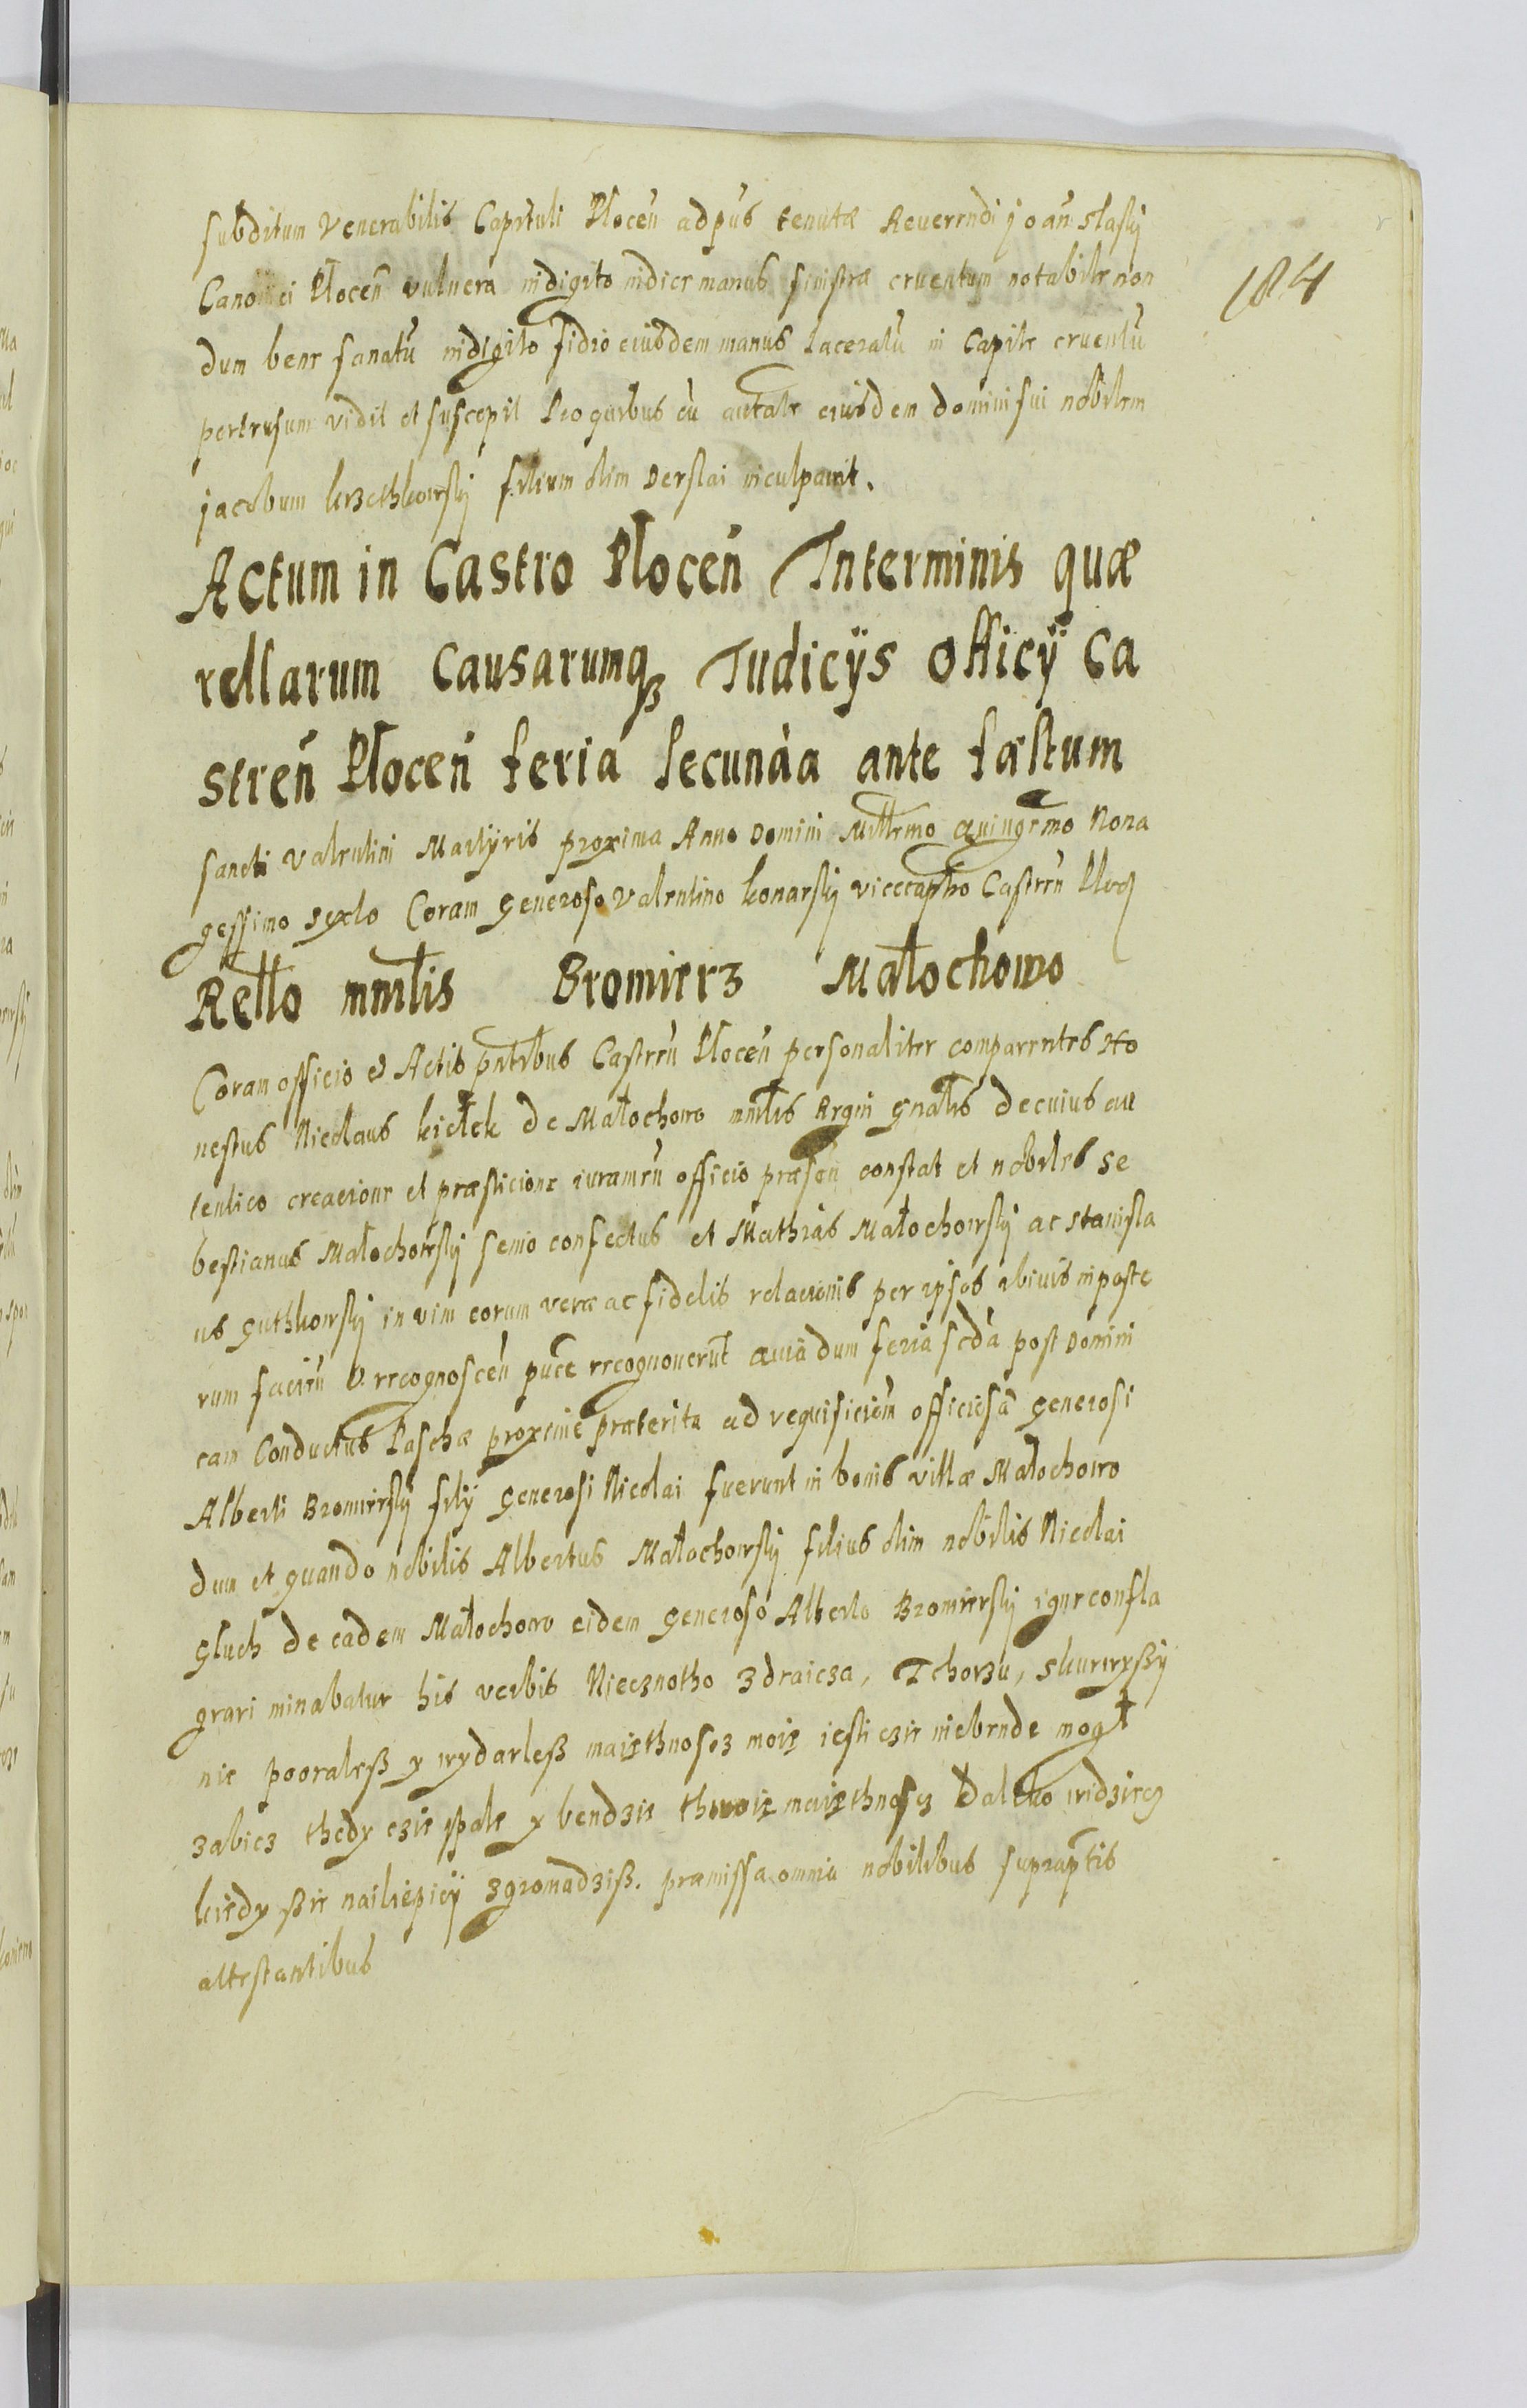 subditum Venerabilis Capituli Plocen̄ ad pn̄s tenutæ Reverendi Joan̄: slasky
184
Canonici Plocen̄ vulnera in digito indice manus sinistræ cruentum notabile non
dum bene sanatū in digito fidio eiusdem manus laceratū in Capite cruentū
pertrusum vidit et suscepit Pro quibus cū autate eiusdem domini sui nobilem
Jacobum krzethkowsky filium olim Derslai inculpavit.
Actum in Castro Plocen̄ In terminis quæ
rellarum Causarumq3 Judicijs officij Ca
stren̄ Plocen̄ feria secunda ante fæstum
sancti Valentini Martyris proxima Anno Domini Millemo quingemo Nona
gessimo sexto Coram Generoso Valentino konarsky vicecaptno Castren̄ Ploc
Rello mnlis Bromierz Małochowo
Coram officio et Actis pntibus Castren̄ Plocen̄ personaliter comparentes Ho
nestus Nicolaus kiełek de Małochowo mnlis Regni gnalis de cuius au
tentico creacione et præsticione iuramen̄ officio præsen̄ constat et nobiles Se
bestianus Małochowsky senio confectus et Mathias Małochowsky ac Stanisla
us guthkowsky in vim eorum veræ ac fidelis relacionis per ipsos ibi uis in poste
rum facien̄ et recognoscen̄ pn̄te recognoverūt quia dum feria scda post Domini
cam Conductus Paschæ proxime præterita ad requisicion̄ officiosā generosi
Alberti Bromirsky filij Generosi Nicolai fuerunt in bonis villæ Małochowo
dum et quando nobilis Albertus Małochowsky filius olim nobilis Nicolai
gluch de eadem Małochowo eidem generoso Alberto Bromirsky igne confla
grari minabatur his verbis Niecznotho zdraicza, Tchorzu, skurwyßy
nie pooraleß y wydarleß maiethnoscz moie iesli czie niebende mogł
zabicz thedy czie spale y bendzie thwoie maiethnoscz daleko widziecz
kiedy ßie nailiepiey zgromadziß. præmissa omnia nobilibus supraptis
attestantibus